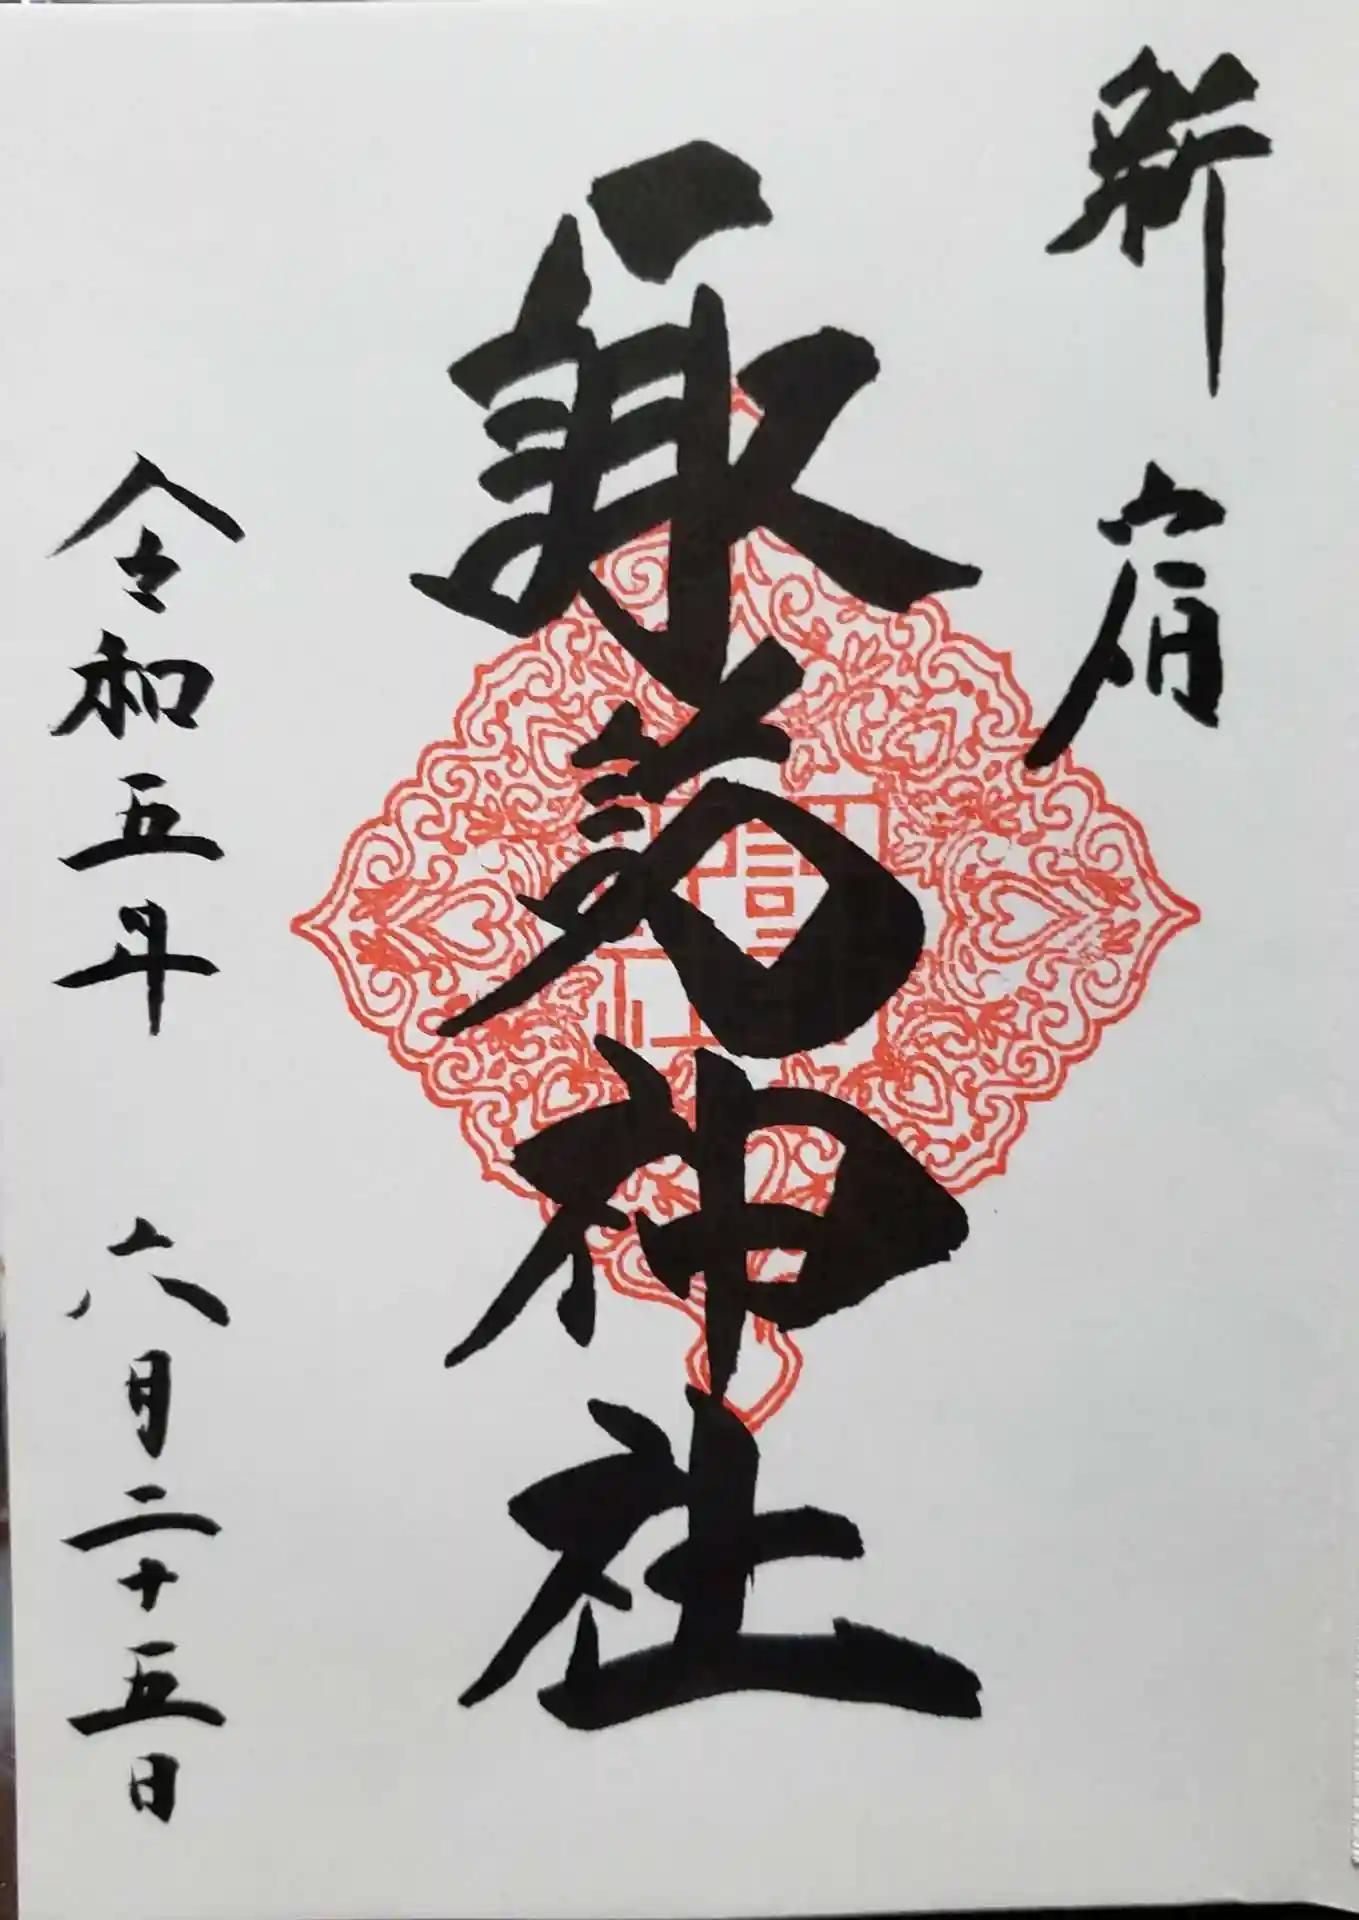 新宿
諏訪神社
令和五年 六月二十五日